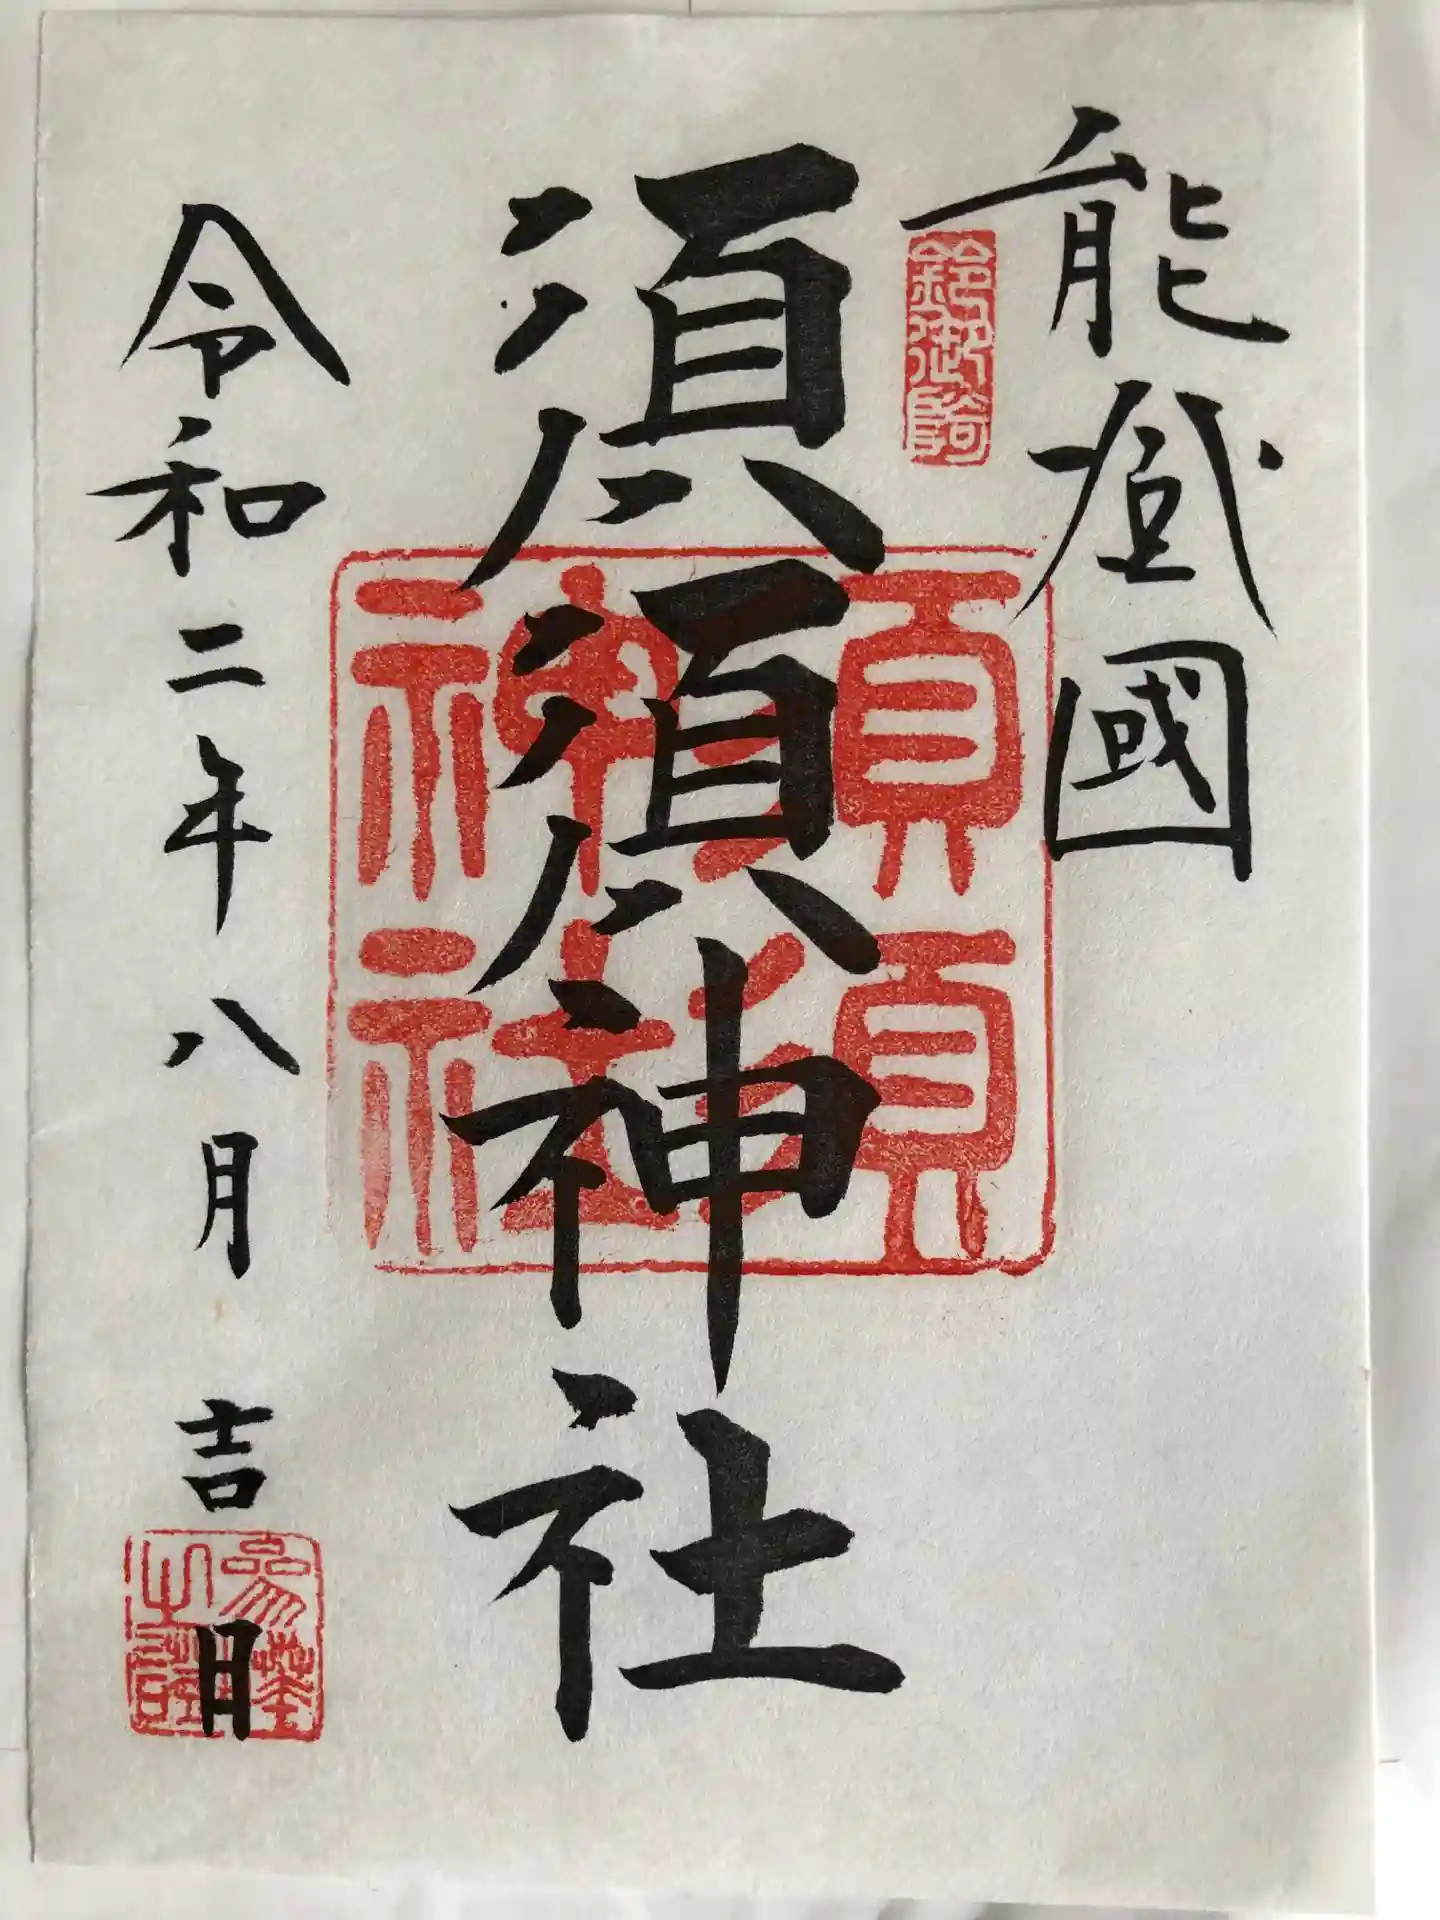 能登國
鈴御
須須神社
須須
神社
令和二年八月吉日